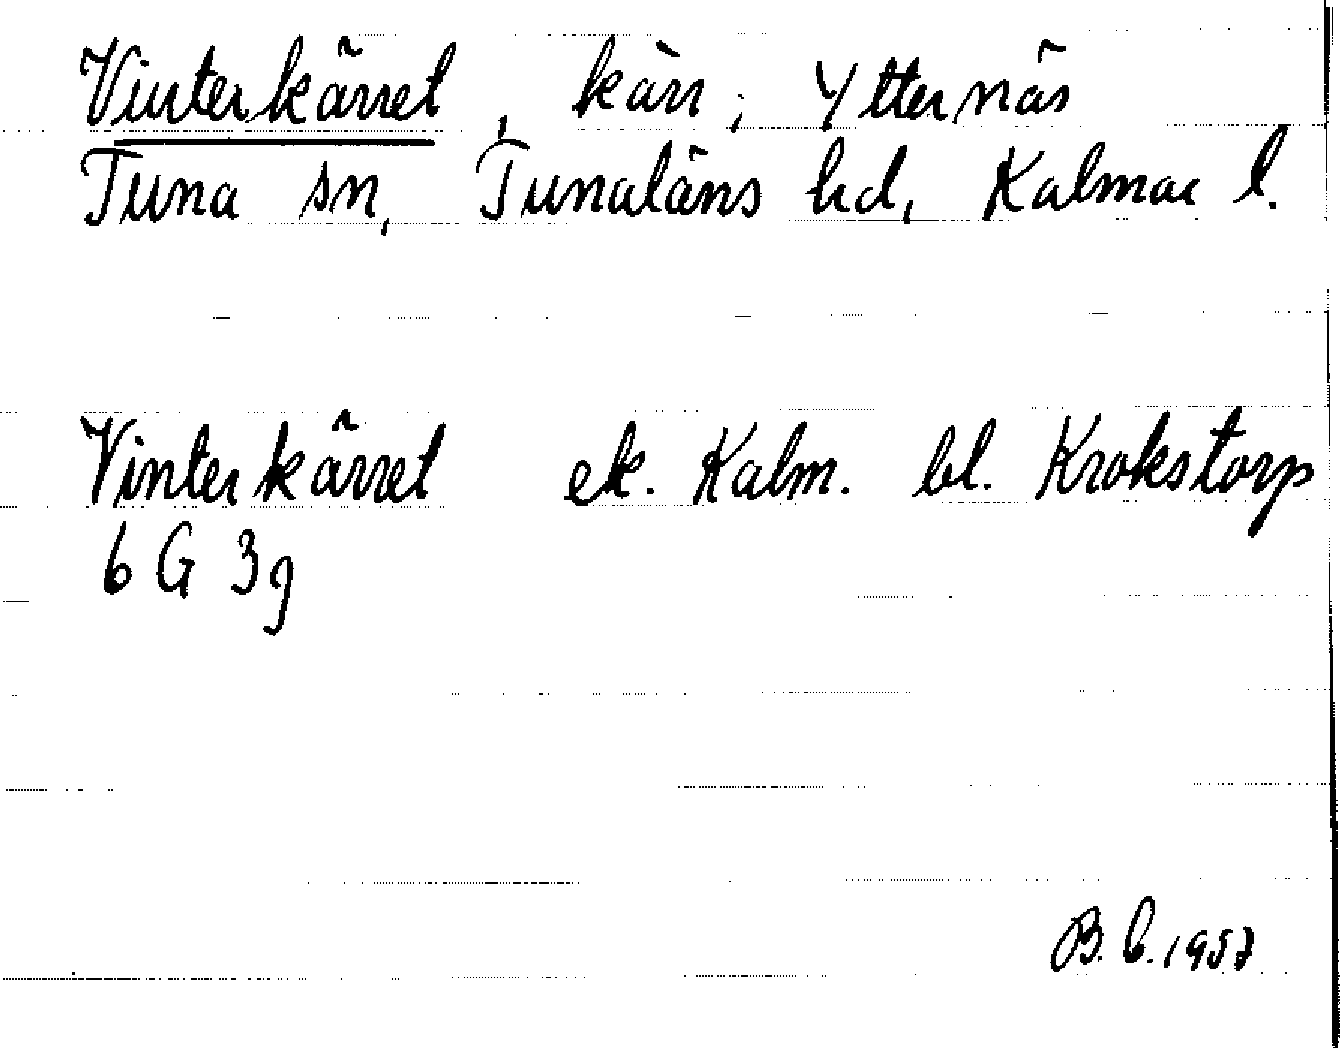 Vinterkärret, kärr, Ytternäs
Tuna sn, Tunaläns hd, Kalmar l.
Vinterkärret ek. Kalm. bl. Krokstorp
6 G 3g
B. C. 1957